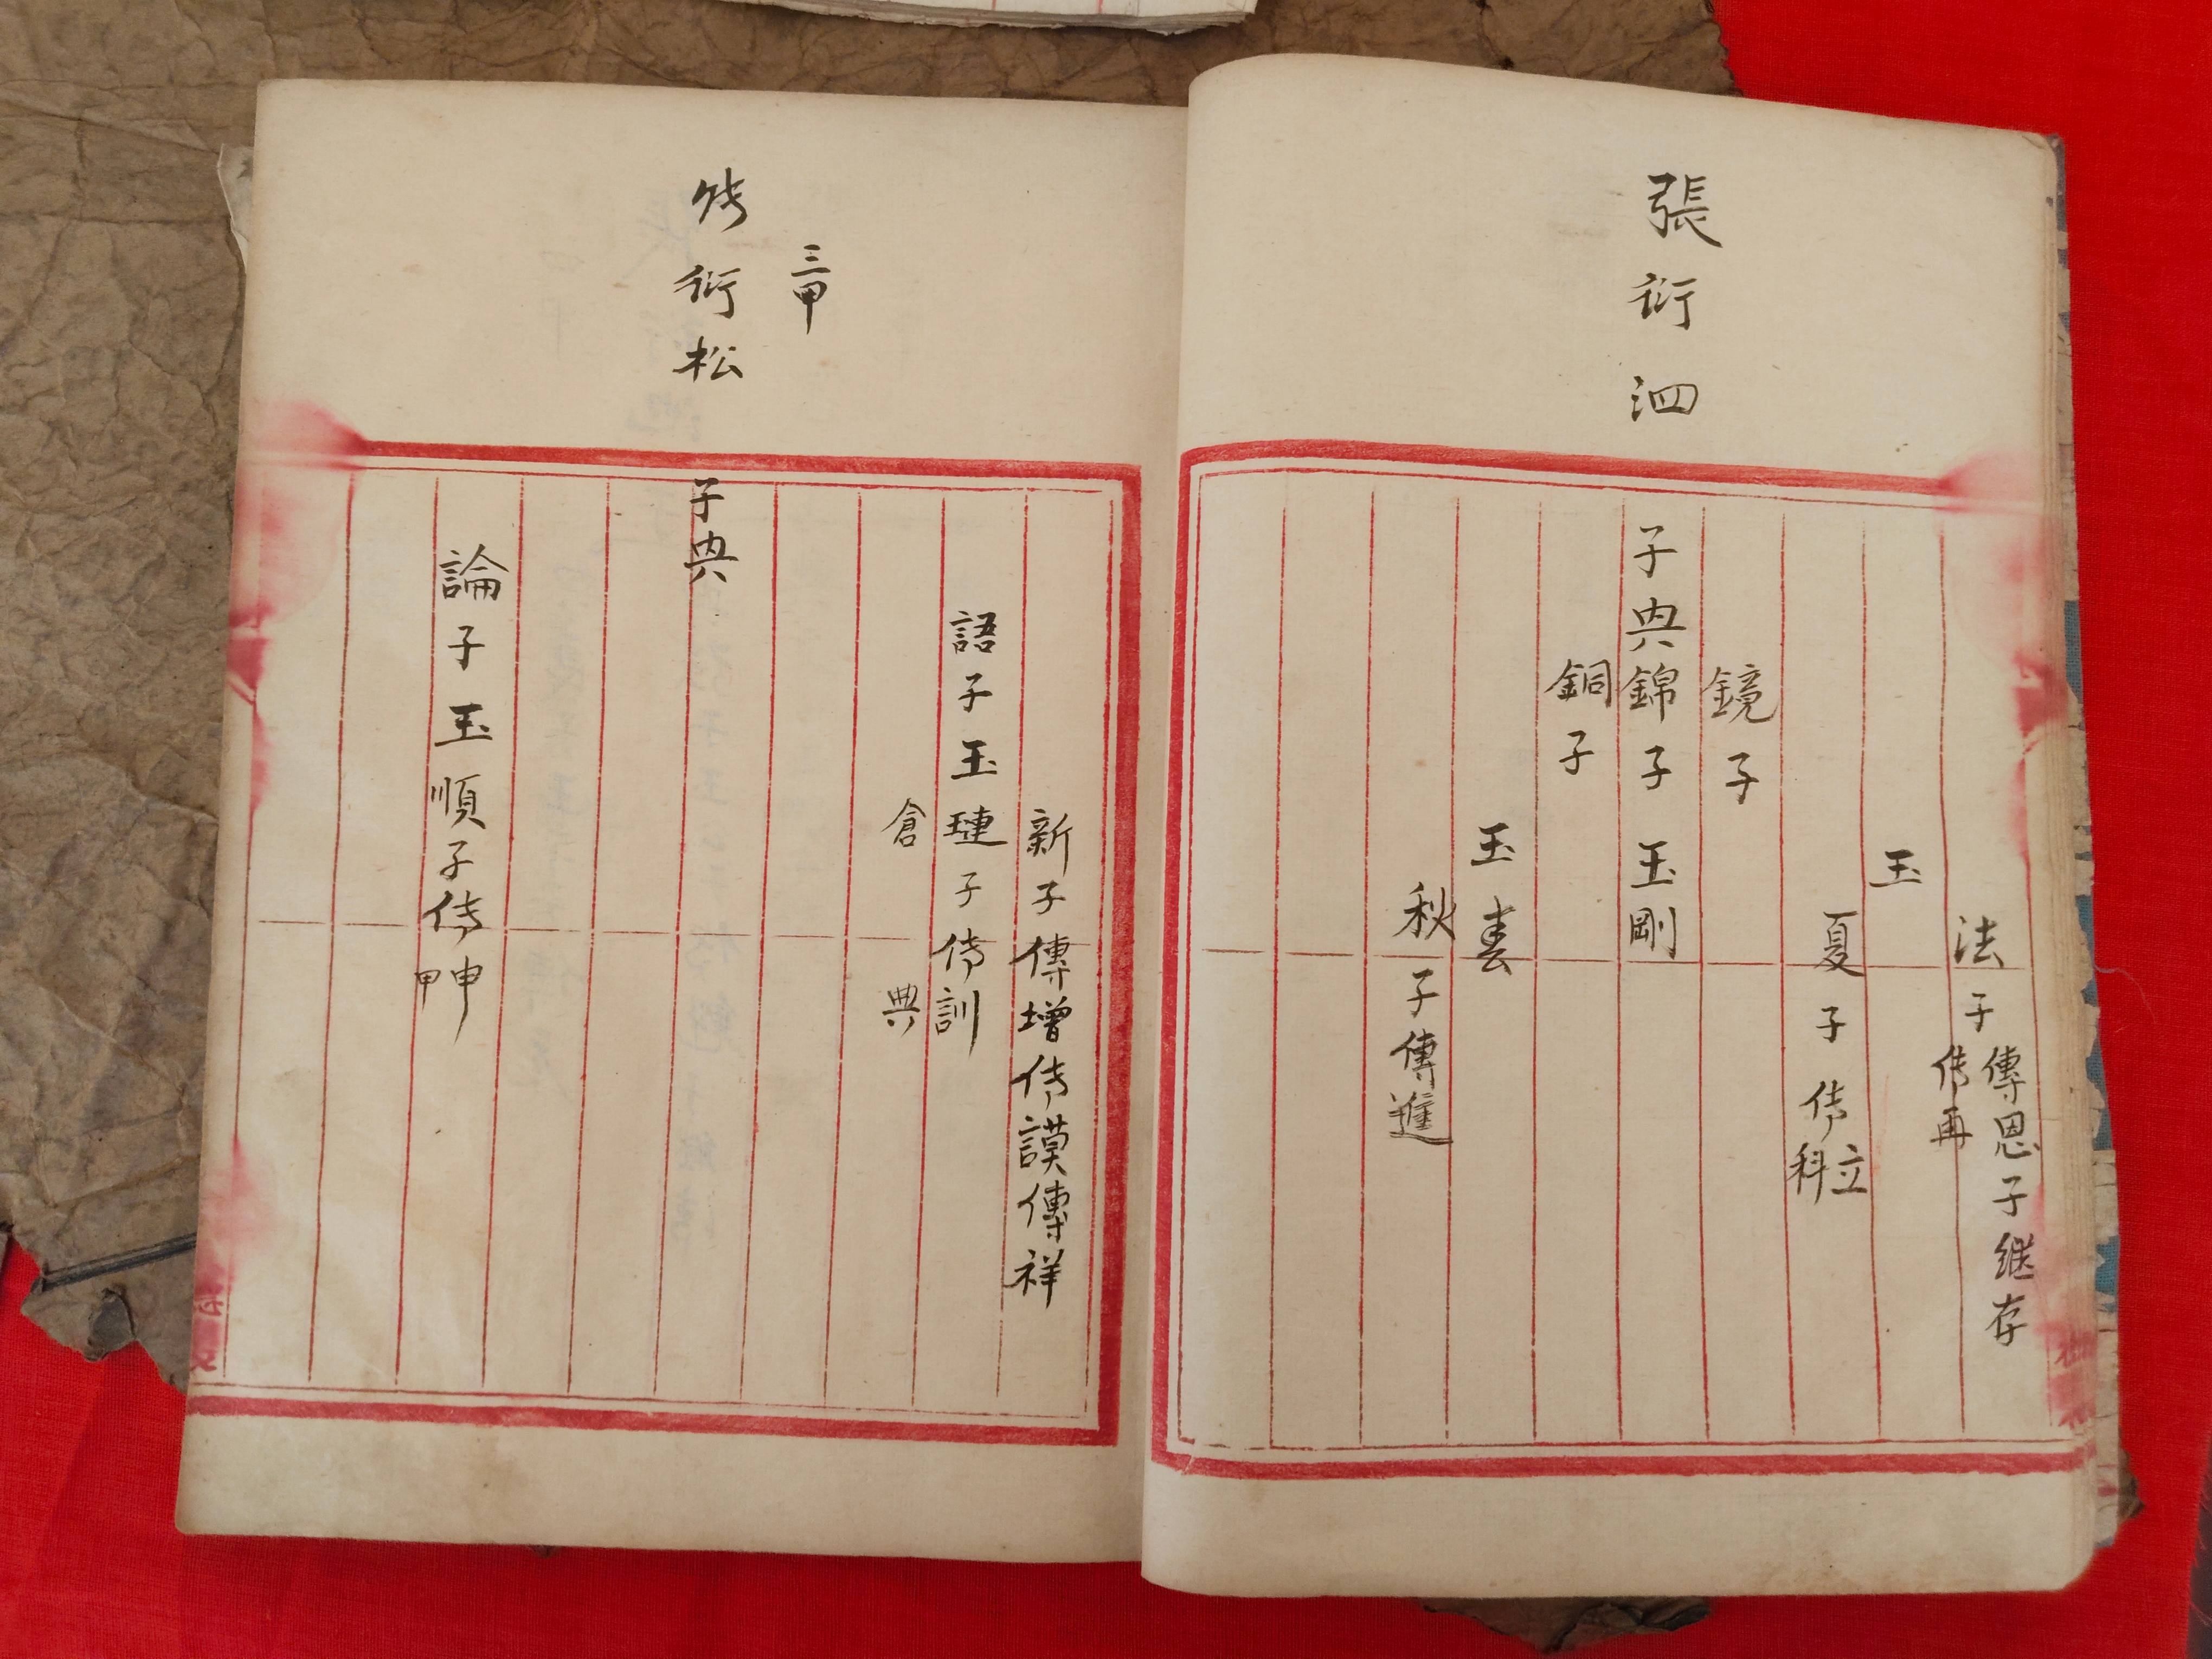 張衍泗
法子傳恩子继存
传再
玉
夏子传立
科
鏡子
子典錦子玉剛
銅子
玉春
秋子傳進
三甲
衍松
新子傳增传謨傳祥
語子玉璉子传訓
倉
典
子典
論子玉順子传申
甲